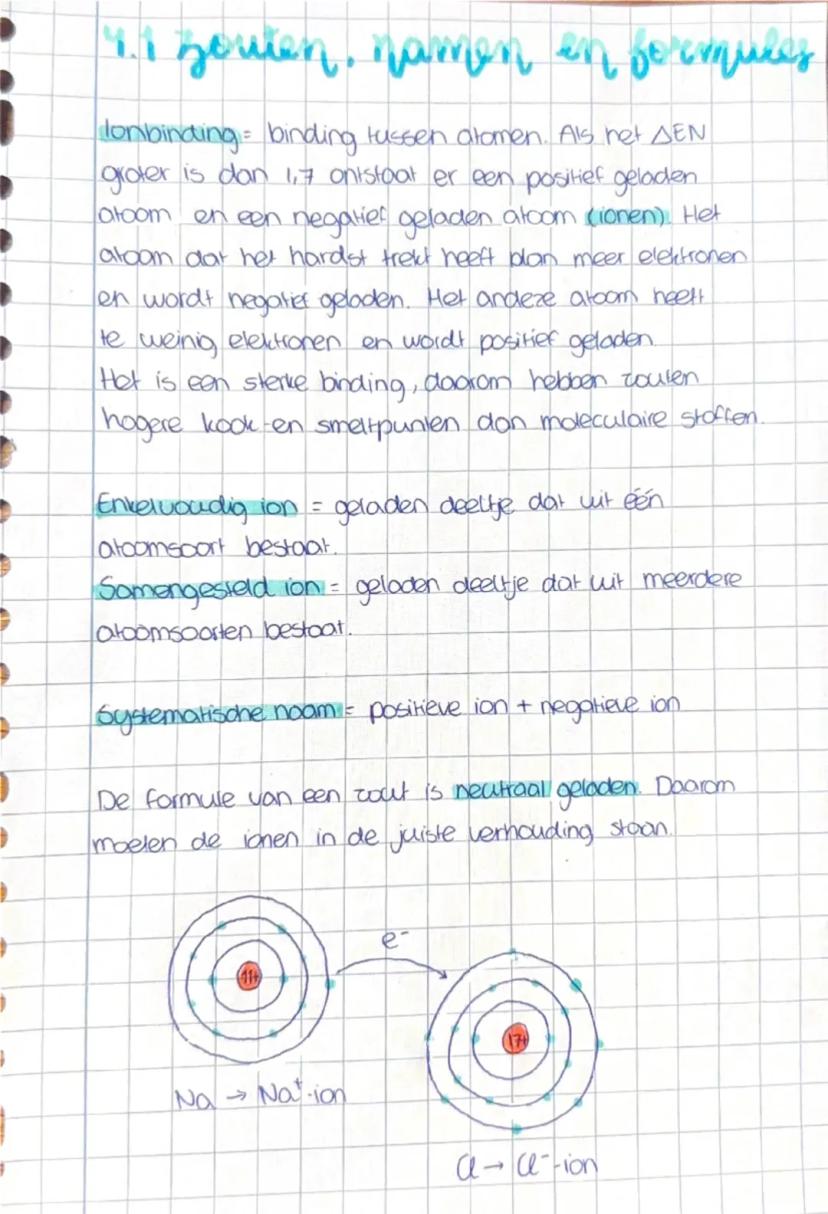 4.1 zouten, namen en formules
Ionbinding = binding tussen atomen. Als het ΔEN
groter is dan 1,7 ontstaat er een positief geladen
atoom en een negatief geladen atoom (ionen). Het
atoom dat het hardst trekt heeft dan meer elektronen
en wordt negatief geladen. Het andere atoom heeft
te weinig elektronen en wordt positief geladen
Het is een sterke binding, daarom hebben zouten
hogere kook-en smeltpunten dan moleculaire stoffen.
Enkelvoudig ion = geladen deeltje dat uit één
atoomsoort bestaat.
Samengesteld ion = geladen deeltje dat uit meerdere
atoomsoorten bestaat.
Systematische naam = positieve ion + negatieve ion
De formule van een zout is neutraal geladen. Daarom
moeten de ionen in de juiste verhouding staan.
e⁻
11+
17+
Na → Na⁺-ion
Cl → Cl⁻-ion